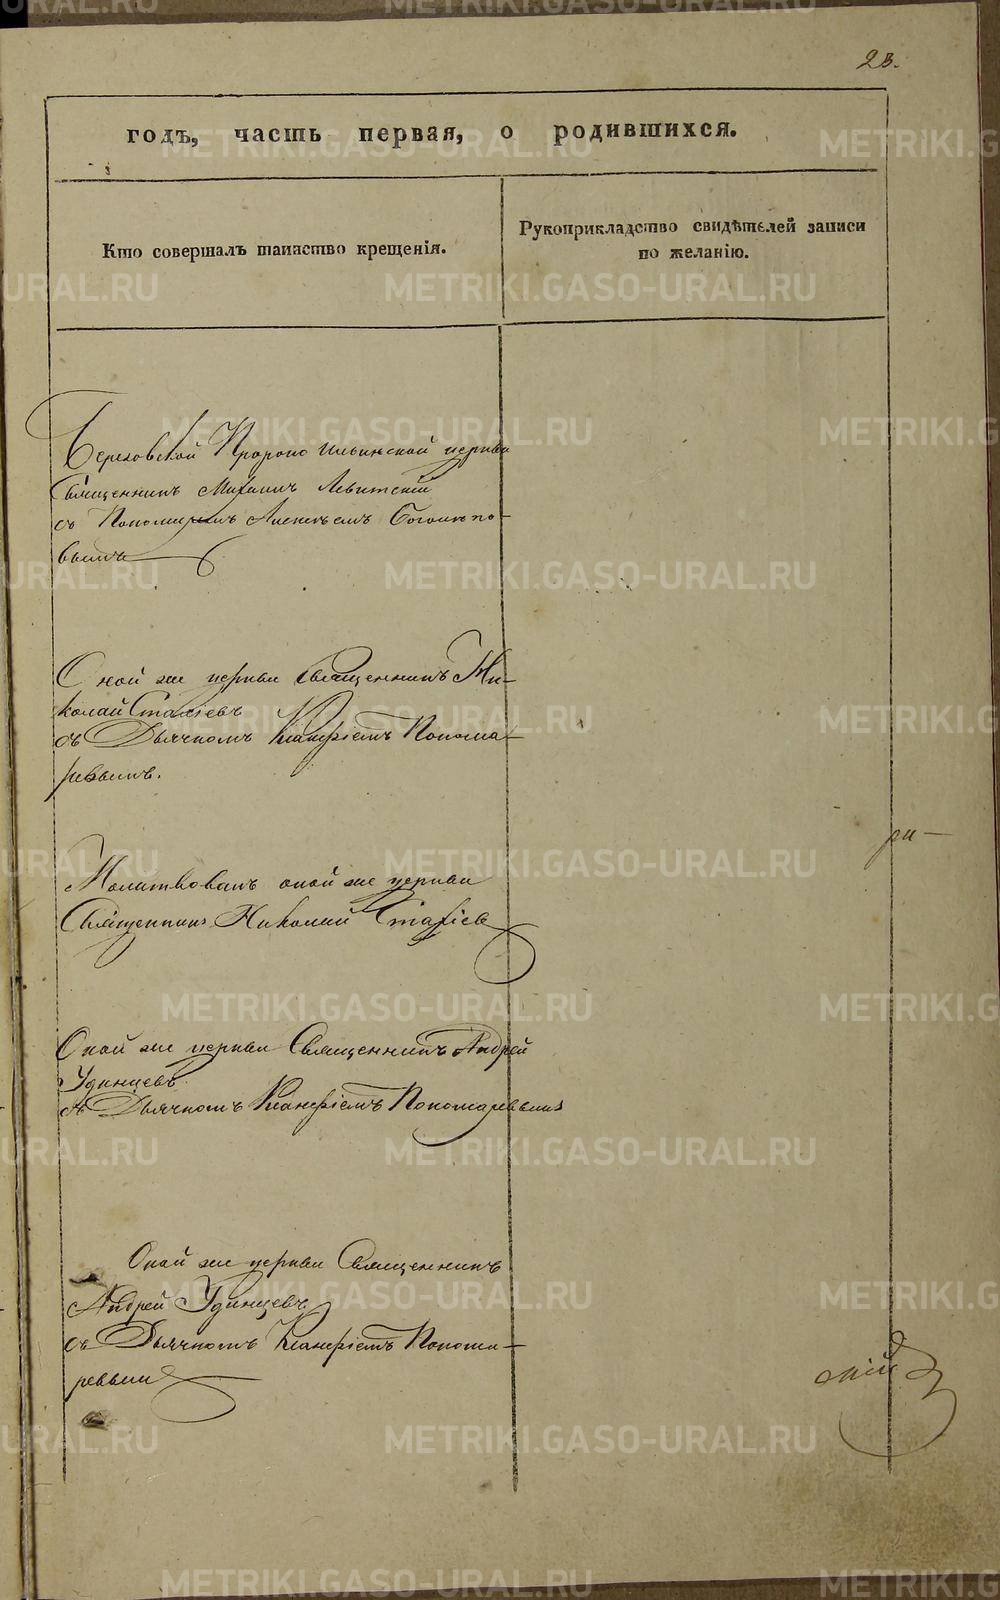 23.
годъ, часть первая, о родившихся.
Кто совершалъ таинство крещенія.
Рукоприкладство свидѣтелей записи
по желанію.
Березовской Пророко Ильинской церкви
Священникъ Михаилъ Левитскій
съ Пономаремъ Алексѣемъ
вымъ
Оной же церкви Священникъ Ни-
колай Стахіевъ
съ Дьячкомъ Панома-
ревымъ.
Молитвовалъ оной же церкви
Священникъ Николай Стахіев
Оной же церкви Священникъ Андрей
Удинцевъ
съ Дьячкомъ Пономаревымъ
Оной же церкви Священникъ
Андрей Удинцевъ
съ Дьячкомъ Понома-
ревым
ри-
скій
METRIKI.GASO-URAL.RU